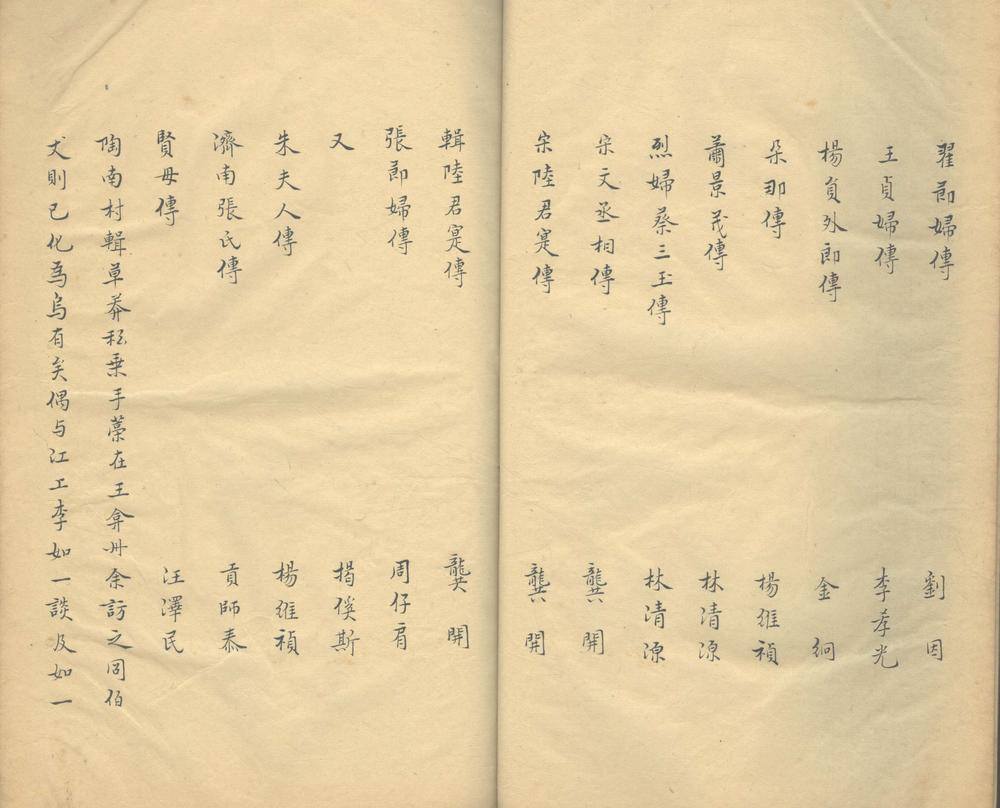 翟節婦傳 劉因
王貞婦傳 李孝光
楊貟外郎傳 金絅
朶那傳 楊維禎
蕭景茂傳 林清源
烈婦蔡三玉傳 林清源
宋文丞相傳 龔開
宋陸君寔傳 龔開
輯陸君寔傳 龔開
張節婦傳 周仔肩
又 揭傒斯
朱夫人傳 楊維禎
濟南張氏傳 貢師泰
賢母傳 汪澤民
陶南村輯草莽私乗手藁在王弇州余訪之冏伯
丈則已化為烏有矣偶与江上李如一談及如一